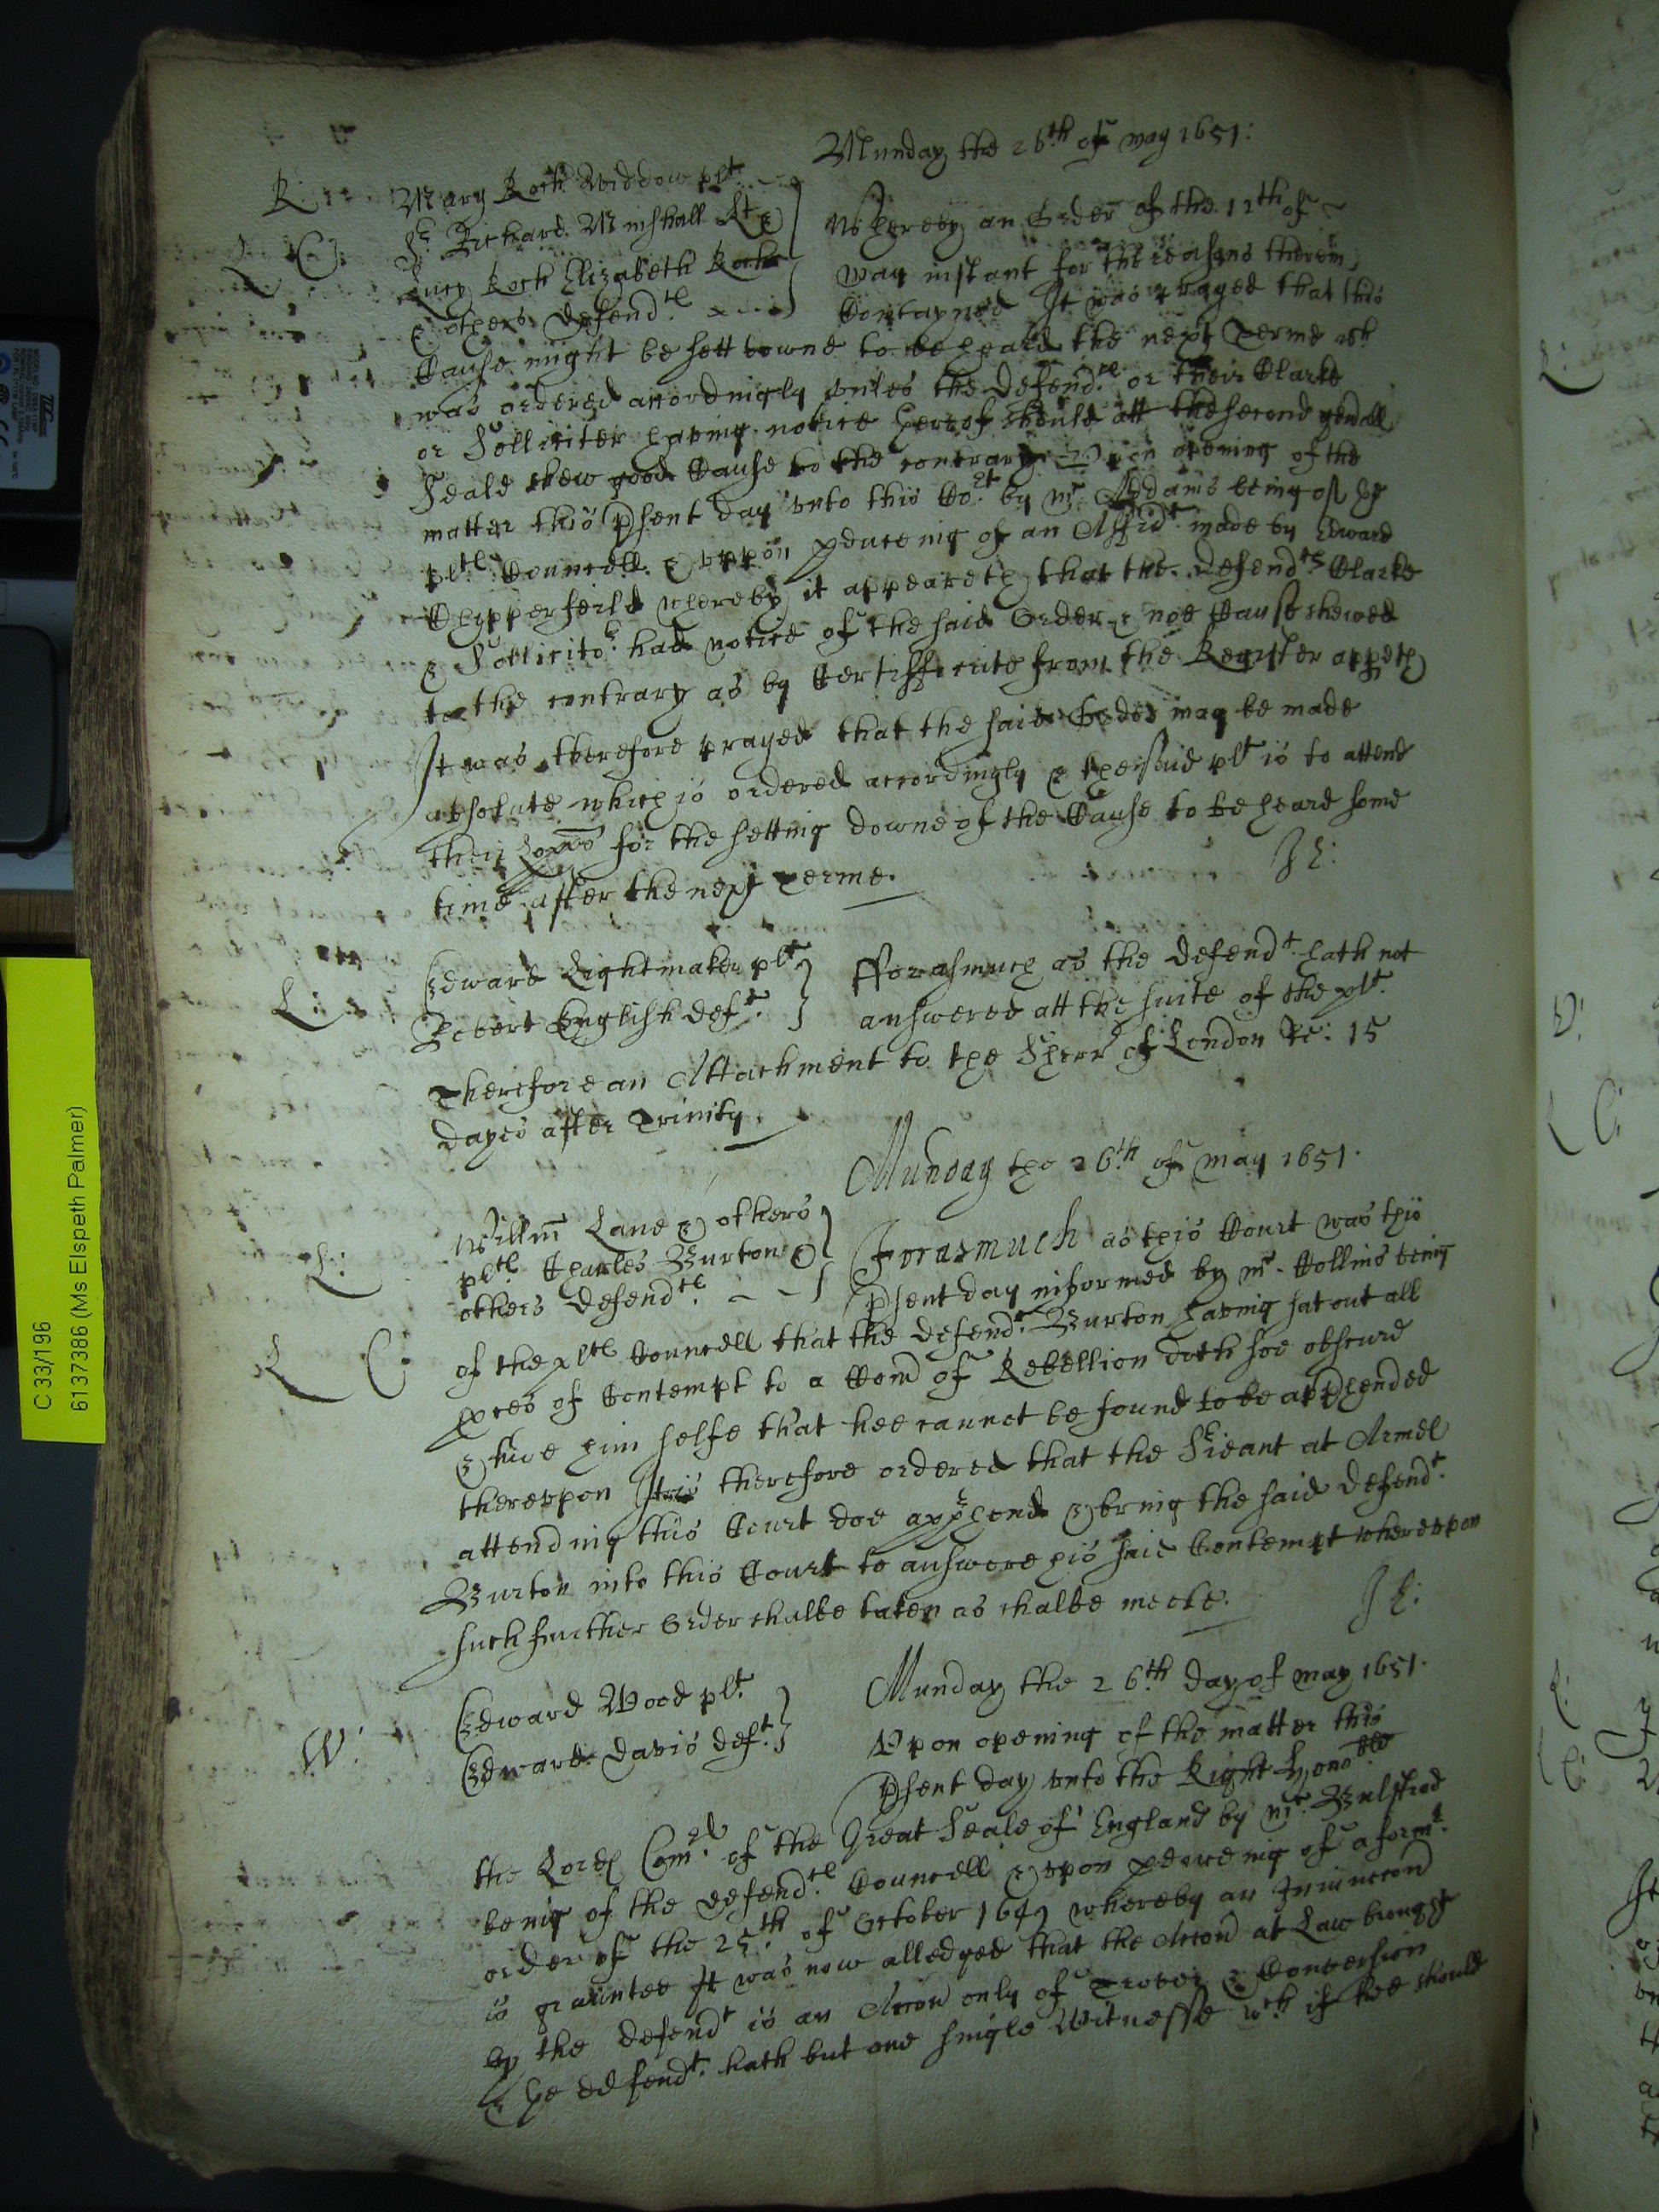 Munday the 26th of may 1651:
R:
Mary Roch Widdow plt
Sr Richard Minshall Kt &
L C:
Lucy Roch Elizabeth Roch
& others defendtes
Whereby an Order of the 12th of
may instant for the reasons therein
Contayned It was prayed that this
Cause might be sett downe to be heard the next Terme wch
was ordered accordingly vnles the defendtes or their Clarke
or Solliciter haveing notice hereof should att the second genrall
Seale shew good Cause to the contrary Vpon opening of the
matter this psent day vnto this Cort by mr Addams being of ye
pltes Councell & vppon pduceing of an Affidt made by Edward
Chipperfeild whereby it appeareth that the defendtes Clarke
& Sollicitor had notice of the said Order & noe Cause shewed
to the contrary as by Certifficate from the Register appeth
It was therefore prayed that the said Order may be made
absolute which is ordered accordingly & the said plt is to attend
their Lopps for the setting downe of the Cause to be heard some
time after the next Terme.
Jh:
L:
Edward Lightmaker plt
Robert English deft
fforasmuch as the defendt hath not
answered att the suite of the plt
Therefore an Attachment to the Sherr of London Rc: 15
dayes after Trinity.
Munday the 26th of may 1651.
L:
Willm Lane & others
pltes Charles Burton &
others defendtes
Forasmuch as this Court was this
psent day informed by mr Collins being
L C:
of the pltes Councell that the defendt Burton haveing sat out all
pces of Contempt to a Com of Rebellion doth soe obscure
& hide him selfe that hee cannot be found to be apphended
therevpon It is therefore ordered that the Sieant at Armes
attending this Court doe apphend & bring the said defendt
Burton into this Court to answere his said Contempt wherevpon
such further Order shalbe taken as shalbe meete.
Jh:
W:
Edward Wood plt
Edward Davis deft
Munday the 26th day of may 1651.
Vpon opening of the matter this
psent day vnto the Right Honoble
the Lordes Comrs of the Great Seale of England by mr Bulstrod
being of the defendtes Councell & vpon pduceing of a formr
order of the 25th of October 1649 whereby an Iniunccon
is graunted It was now alledged that the Accon at Law brought
by the defendt is an Accon only of Trover & Conversion
& the defendt hath but one single Witnesse wch if hee should
C 33/196
6137386 (Ms Elspeth Palmer)